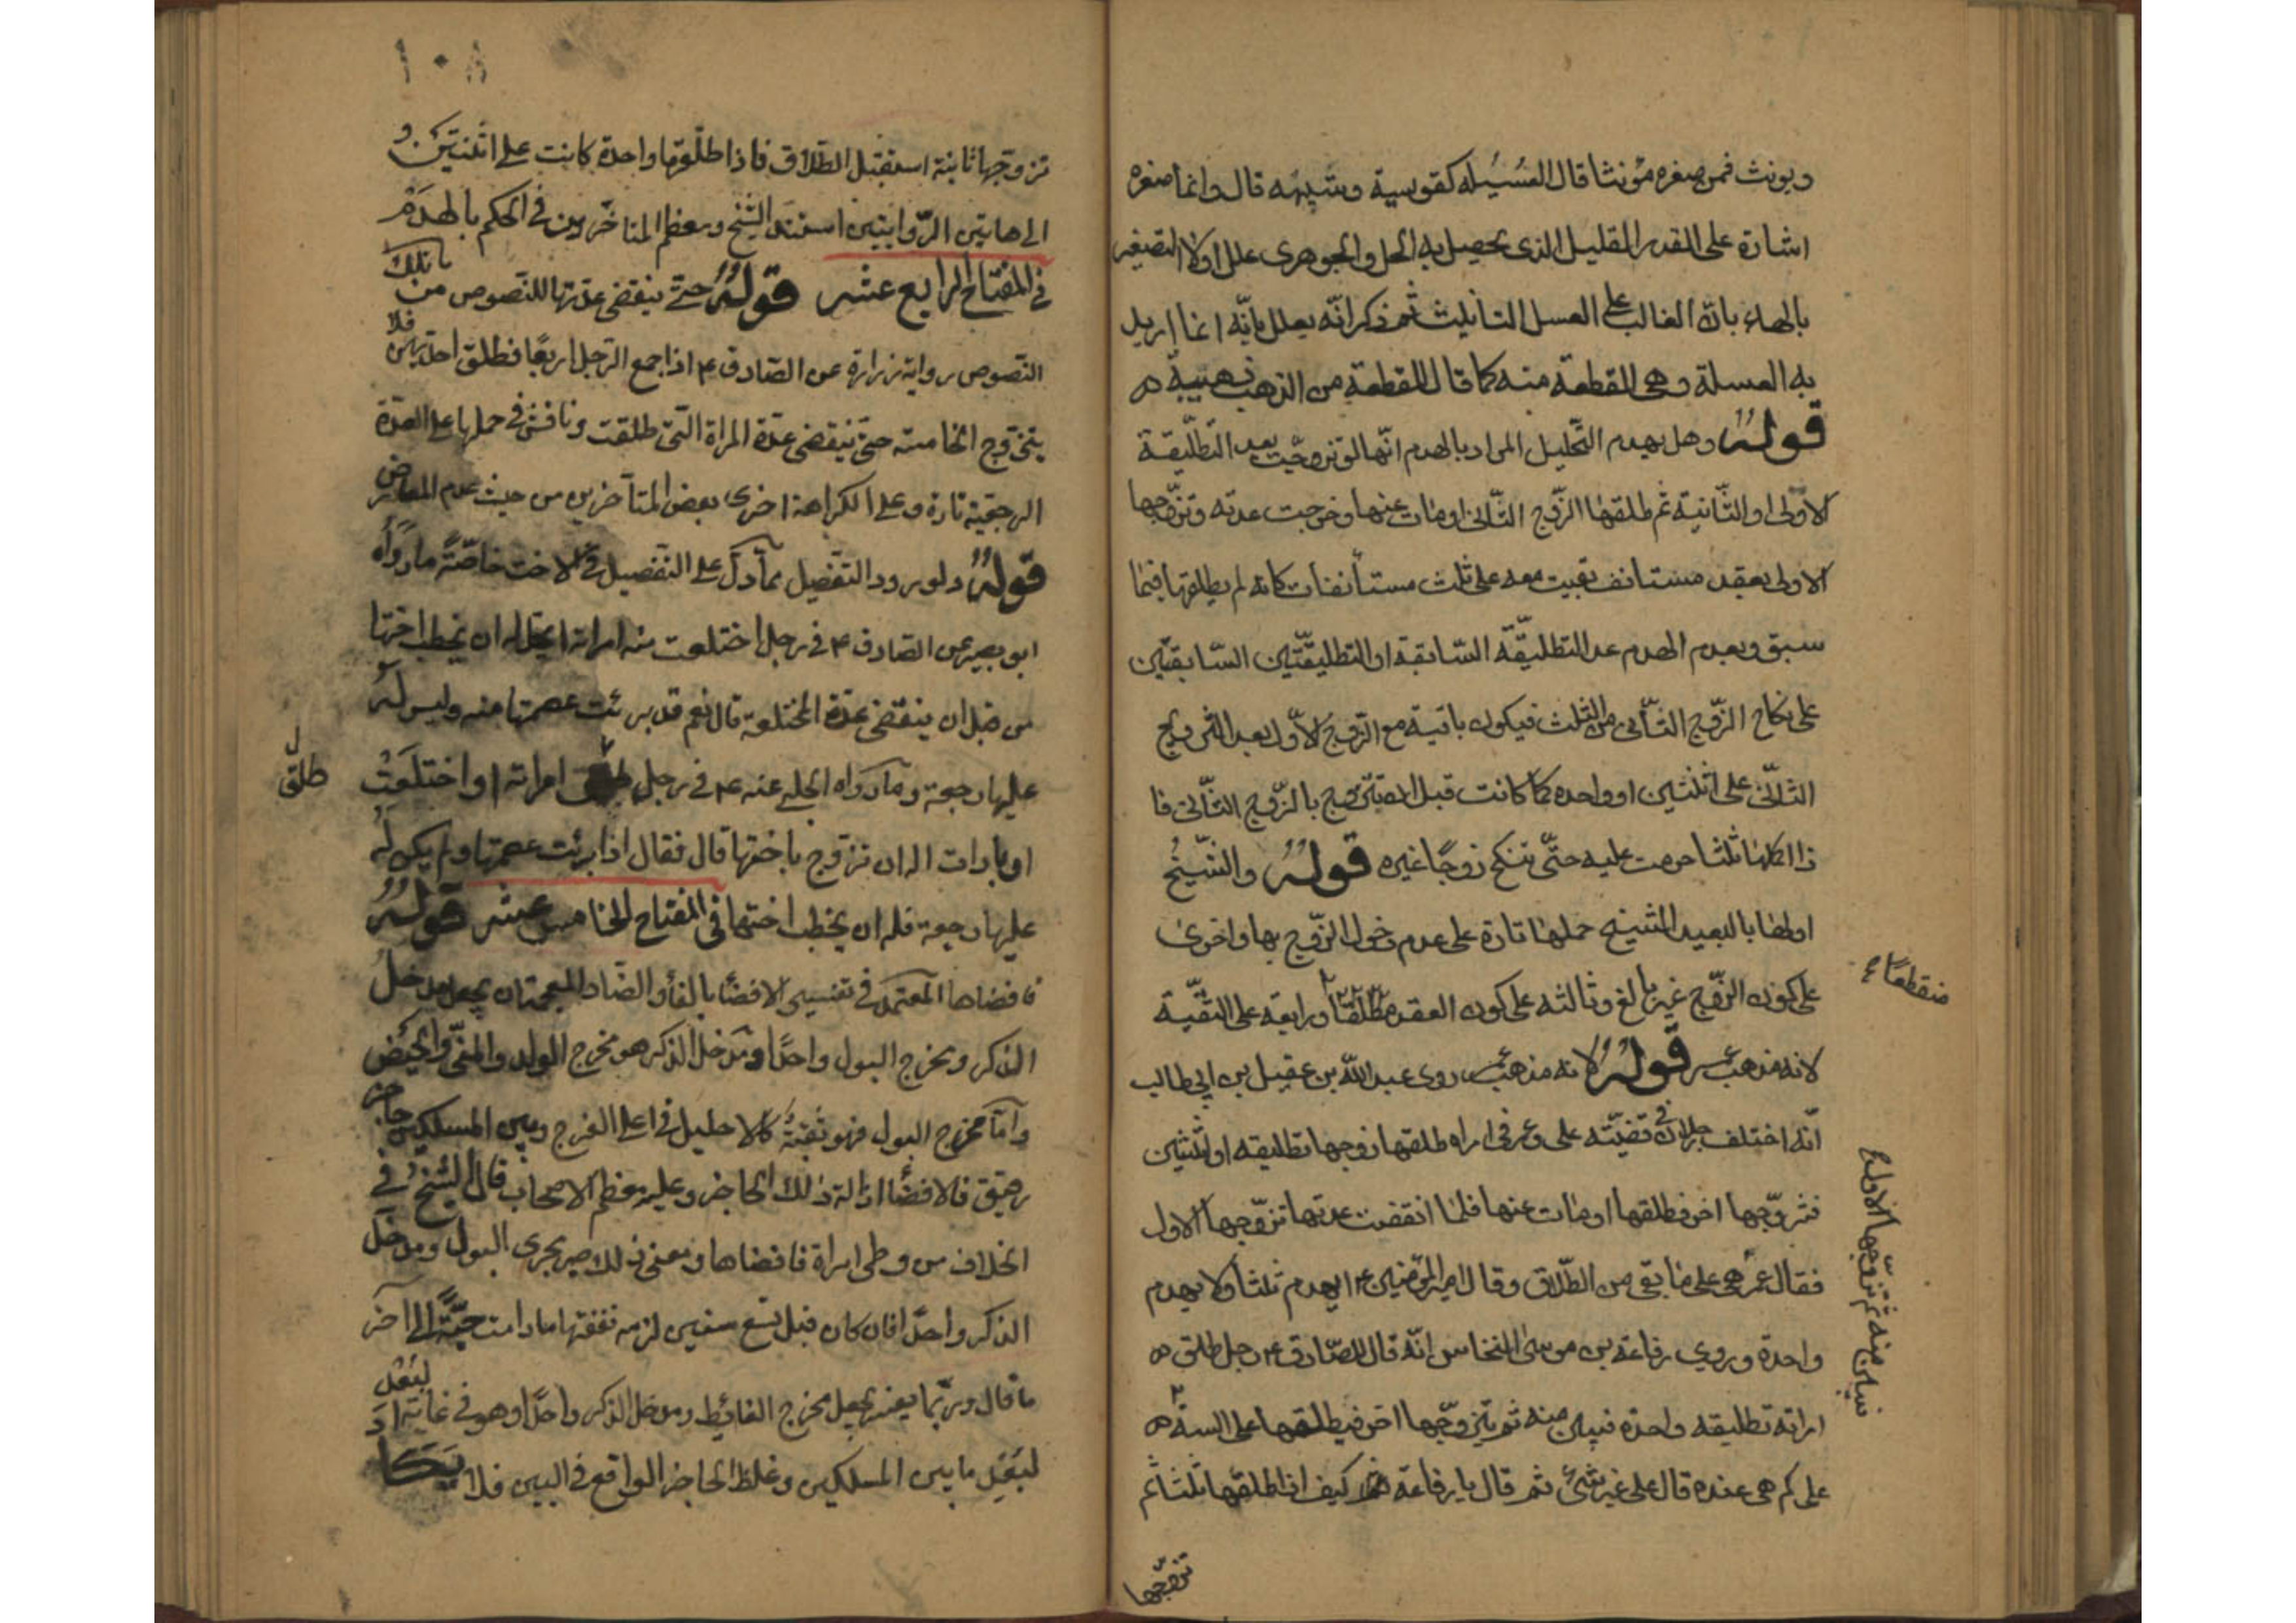 ويونث فمن صغره مؤنثا قال العُسَيله كقوسية وشبهه قال وانما صغره
اشارة على القدر القليل الذى يحصل به الحل والجوهرى علل اولا التصغير
بالهاء بانّ الغالب على العسل التانيث ثم ذكر انّه يعلل بانّه انما اريد
به العسلة وهى القطعة منه كما قال للقطعة من الذهب ذهبيبة
قولہُ وهل يهدم التّحليل المراد بالهدم انّها لو تزوجّت بعد التّطليقة
الاولى او الثّانية ثم طلقها الزّوج الثّانى او مات عنها وخرجت عدته وتزّوجها
الاولى بعقد مستانف بقيت معه على ثلث مستأنفات كانه لم يطلقها فيما
سبق وبعدم الهدم عد التطليقّة السّابقة او التطليقّتين السّابقتين
على نكاح الزّوج الثّانى من الثلث فيكون باقية مع الزوج الاوّل بعد التزويج
الثّانى على اثنثين او واحده كما كانت قبل ان يتزوج بالزّوج الثّانى فا
ذا اكملها ثلثا حرمت عليه حتّى تنكح زوجًا غيره قولہُ والشّيخُ
اولها بالبعيد الشيخ حملها تارة على عدم دخول الزّوج بها واخرى
على كون الزّوج غير بالغ وثالثه على كون العقد مطلقا ورابعة على التقيّة
منقطعًا
لانه مذهب عمر قولہُ لانه مذهب عمر روى عبد اللّه بن عقيل بن ابى طالب
انّه اختلف رجلان فى قضيّته على وعمر فى امراه طلقها زوجها تطليقه او اثنثين
فتزوّجها اخر فطلقها او مات عنها فلما انقضت عدتها تزوّجها الاول
فقال عمر هى على ما بقى من الطّلاق وقال امير المؤمنين ع ايهدم ثلثا ولا يهدم
واحدة وروى رفاعة بن موسى النخاس انّه قال للصّادق ع رجل طلق
امراته تطليقه واحدة فتبين منه ثم يتزوّجها اخر فيطلقها على السنة
فتبين منه ثم تزوّجها الاول
على كم هى عنده قال على غير شئ ثم قال يا رفاعة كيف اذا طلقها ثلثا ثم
تزوجّها
١٠٨
تزوّجها ثانية استقبل الطّلاق فاذا طلّقها واحدة كانت على اثنتين و
الى هاتين الرّوايتين استند الشّيخ ومعظم المتاخّرين فى الحكم بالهدم
فى المفتاح الرابع عشر قولہُ حتى ينقضى عدتها للنّصوص من تلك
النّصوص رواية زرارة عن الصّادق ع اذا جمع الرّجل اربعًا فطلق احديهن فلا
يتزوّج الخامسه حتى ينقضى عدّة المراة الّتى طلقت وناقش فى حملها على العدّة
الرجعيّة تارة وعلى الكراهة اخرى بعض المتأخرين من حيث عدم المعارض
قولہُ ولورود التفصيل ممّا دلّ على التفصيل فى الاخت خاصّةً ما رواه
ابو بصير عن الصّادق ع فى رجل اختلعت منه امراته ايحل له ان يخطب اختها
من قبل ان ينقضى عدّة المختلعة قال نعم قد برئت عصمتها منه وليس له
عليها رجعة وما رواه الحلبى عنه ع فى رجل طلق امراته او اختلعَت
طلق
او بارات اله ان تزوج باختها قال فقال اذا برئت عصمتها ولم يكن له
عليها رجعة فله ان يخطب اختها فى المفتاح الخامس عشر قولہُ
فافضاها المعتمد فى تفسير الافضاء بالفاء والضّاد المعجمة ان يجعل مدخل
الذكر ومخرج البول واحدًا ومدخل الذكر هو مخرج الولد والمنىّ والحيض
وامّا مخرج البول فهو ثقبةٌ كالاحليل فى اعلى الفرج وبين المسلكين حاجز
رقيق فالافضأ ازالة ذلك الحاجز وعليه معظم الاصحاب قال الشيخُ فى
الخلاف من وطى امراة فافضاها ومعنى ذلك صير مجرى البول ومدخل
الذكر واحدًا فان كان قبل تسع سنين لزمه نفقتها ما دامت حيّةً الى آخر
ما قال وربّما يفسّر بجعل مخرج الغائط ومدخل الذكر واحدًا وهو فى غاية البُعْد
لبُعْدِ ما بين المسلكين وغلظ الحاجز الواقع فى البين فلا يكا